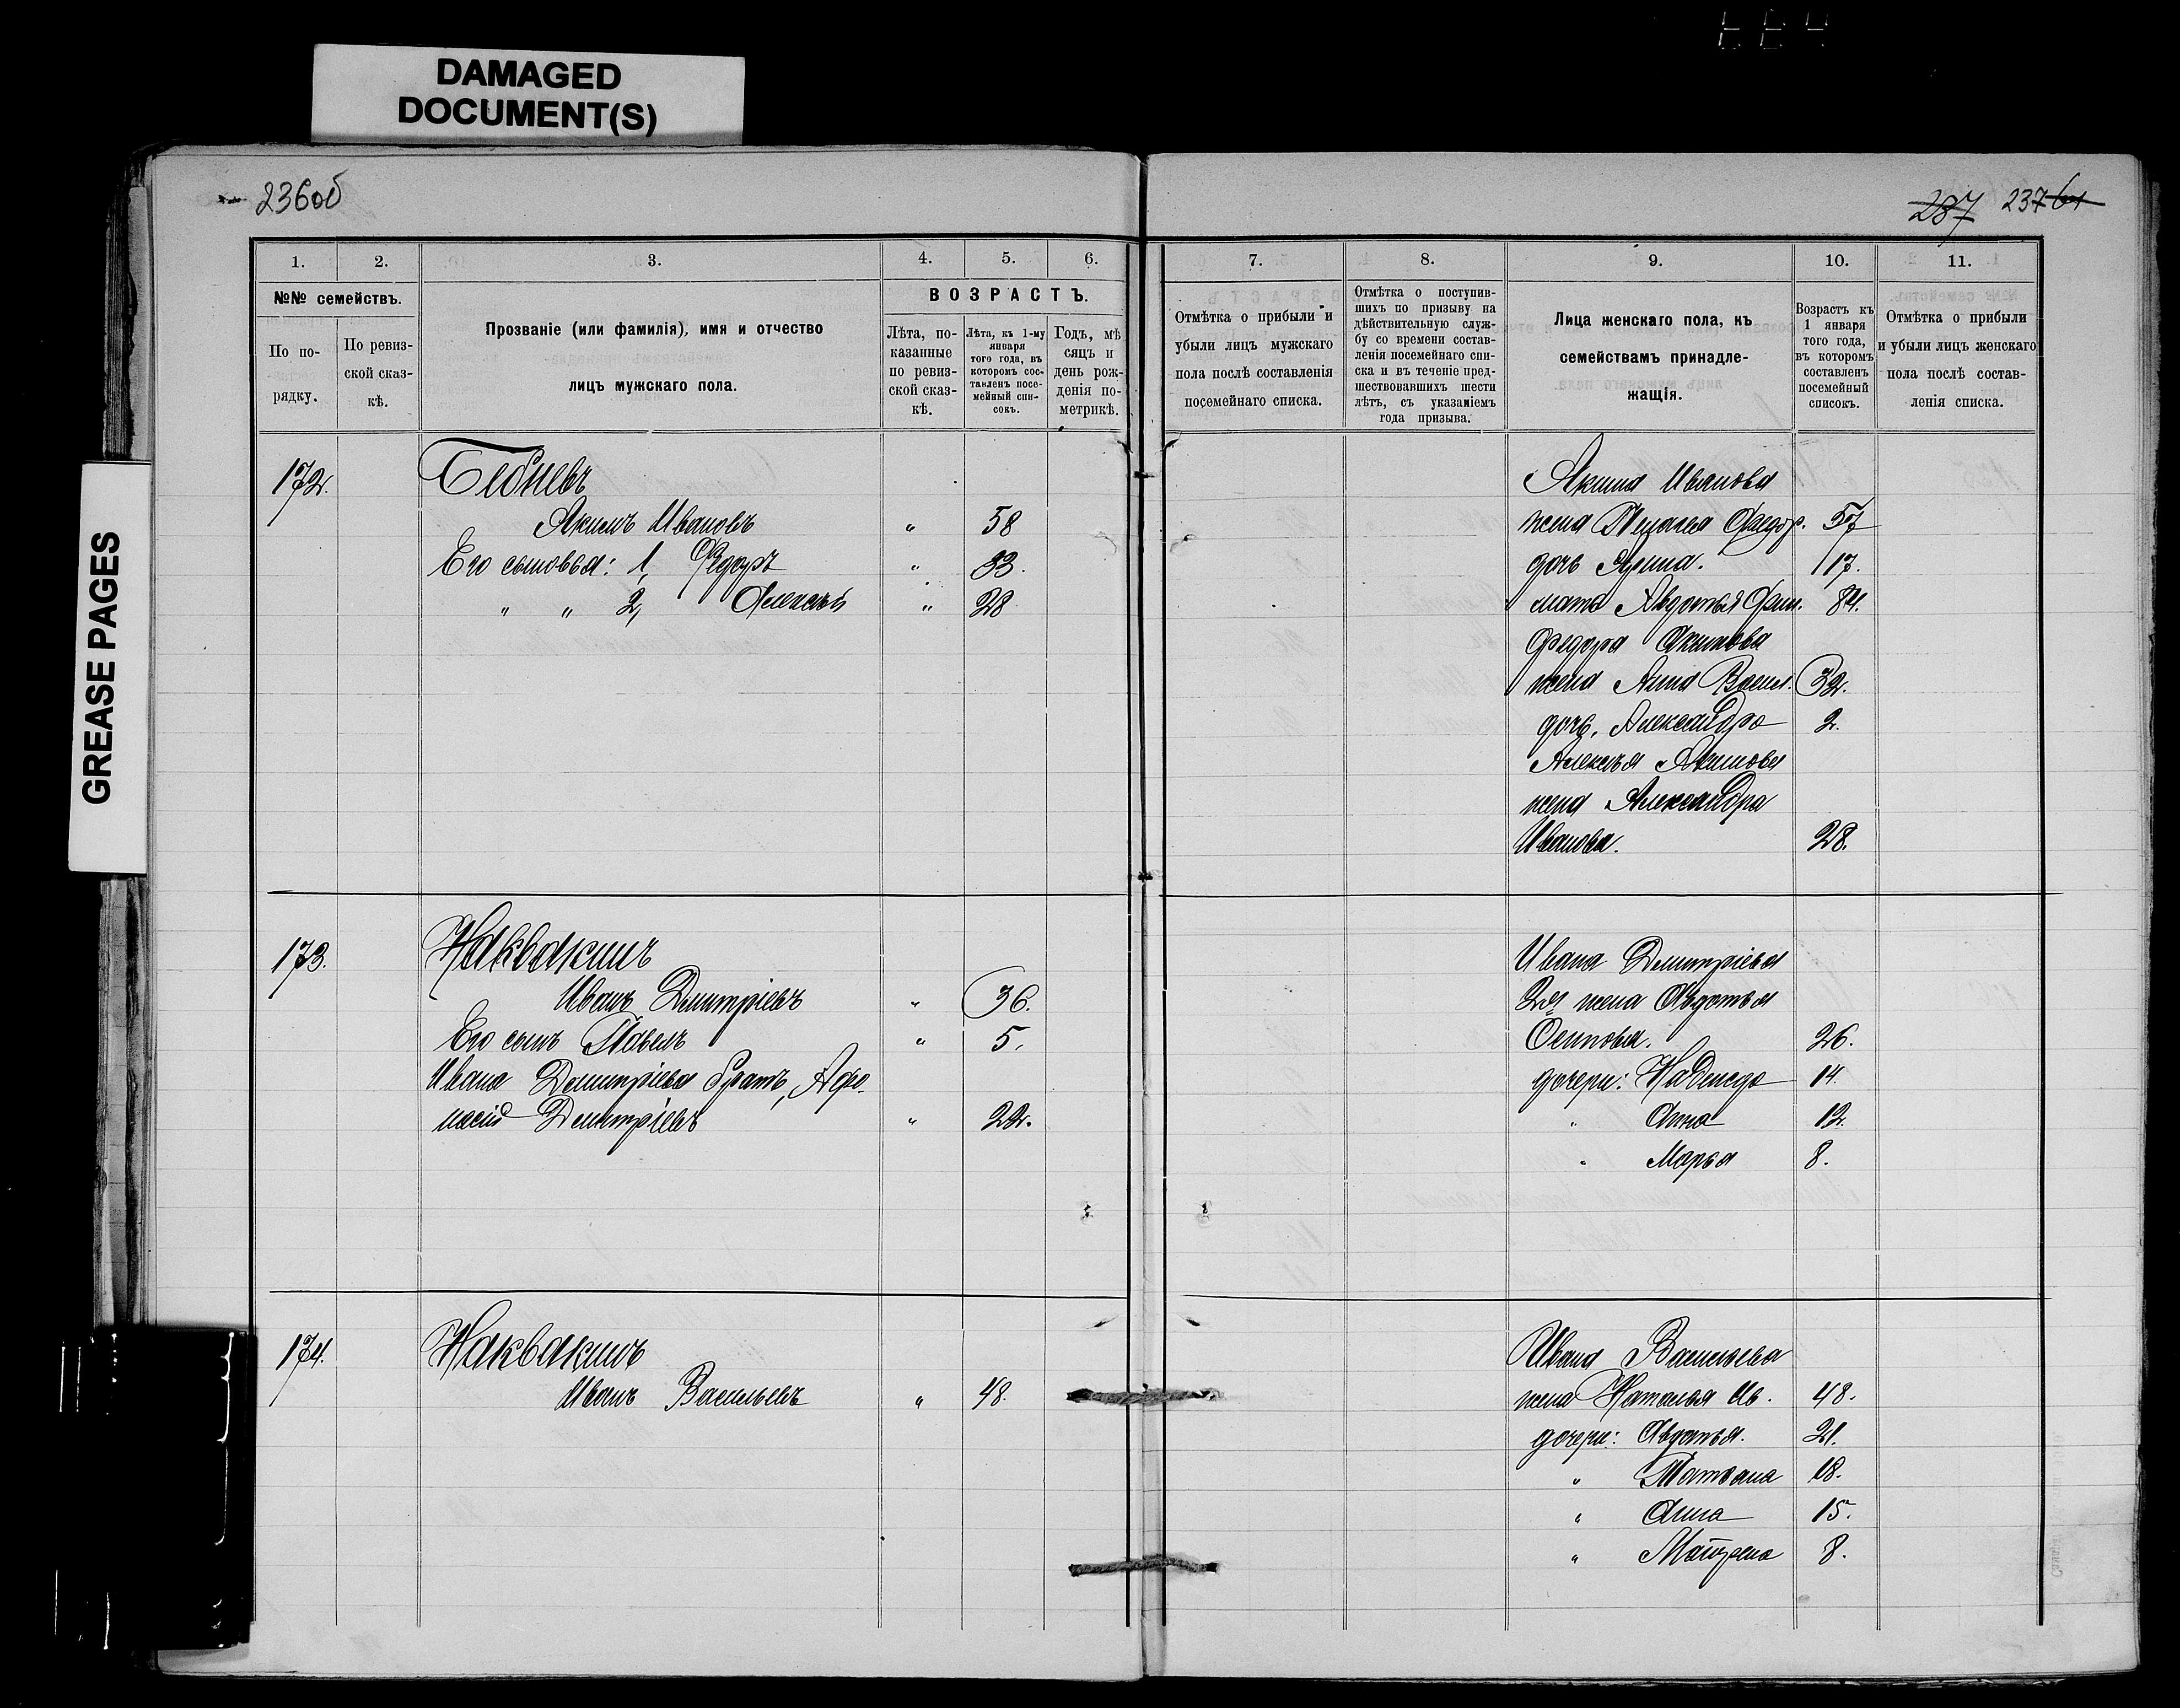 DAMAGED
DOCUMENT(S)
GREASE PAGES
236об
237 237 61
1. 2. 3. 4. 5. 6.
№№ семействъ.
По по-
рядку.
По ревиз-
ской сказ-
кѣ.
Прозваніе (или фамилія), имя и отчество
лицъ мужскаго пола.
ВОЗРАСТЪ.
Лѣта, по-
казанные
по ревиз-
ской сказ-
кѣ.
Лѣта, къ 1-му
января
того года, въ
которомъ сос-
тавленъ посе-
мейный спи-
сокъ.
Годъ, мѣ
сяцъ и
день рож-
денія по-
метрикѣ.
172.
Бѣдневъ
Акимъ Ивановъ " 58
Его сыновья: 1, Федоръ " 33.
" " 2, Алексѣй " 28
173.
Наквакинъ
Иванъ Дмитріевъ " 36.
Его сынъ Павелъ " 5.
Ивана Дмитріева братъ, Афа-
насій Дмитріевъ " 22.
174.
Наквакинъ
Иванъ Васильевъ " 48.
7. 8. 9. 10. 11.
Отмѣтка о прибыли и
убыли лицъ мужскаго
пола послѣ составленія
посемейнаго списка.
Отмѣтка о поступив-
шихъ по призыву на
дѣйствительную служ-
бу со времени состав-
ленія посемейнаго спи-
ска и въ теченіе пред-
шествовавшихъ шести
лѣтъ, съ указаніемъ
года призыва.
Лица женскаго пола, къ
семействамъ принадле-
жащія.
Возрастъ къ
1 января
того года,
въ которомъ
составленъ
посемейный
списокъ.
Отмѣтка о прибыли
и убыли лицъ женскаго
пола послѣ состав-
ленія списка.
Акима Иванова
жена Пелагея Федор. 57
дочь Арина. 17.
мать Авдотья 84.
Федора Акимова
жена Анна Васил. 32.
дочь, Александра 2.
Алексѣя Акимова
жена Александра
Иванова. 28.
Ивана Дмитріева
2я жена Авдотья
Осипова. 26.
дочери: Надежда 14.
" Анна 12.
" Марья 8.
Ивана Васильева
жена Наталья Ив. 48.
дочери: Авдотья. 21.
" Татьяна 18.
" Анна 15.
" Матрена 8.